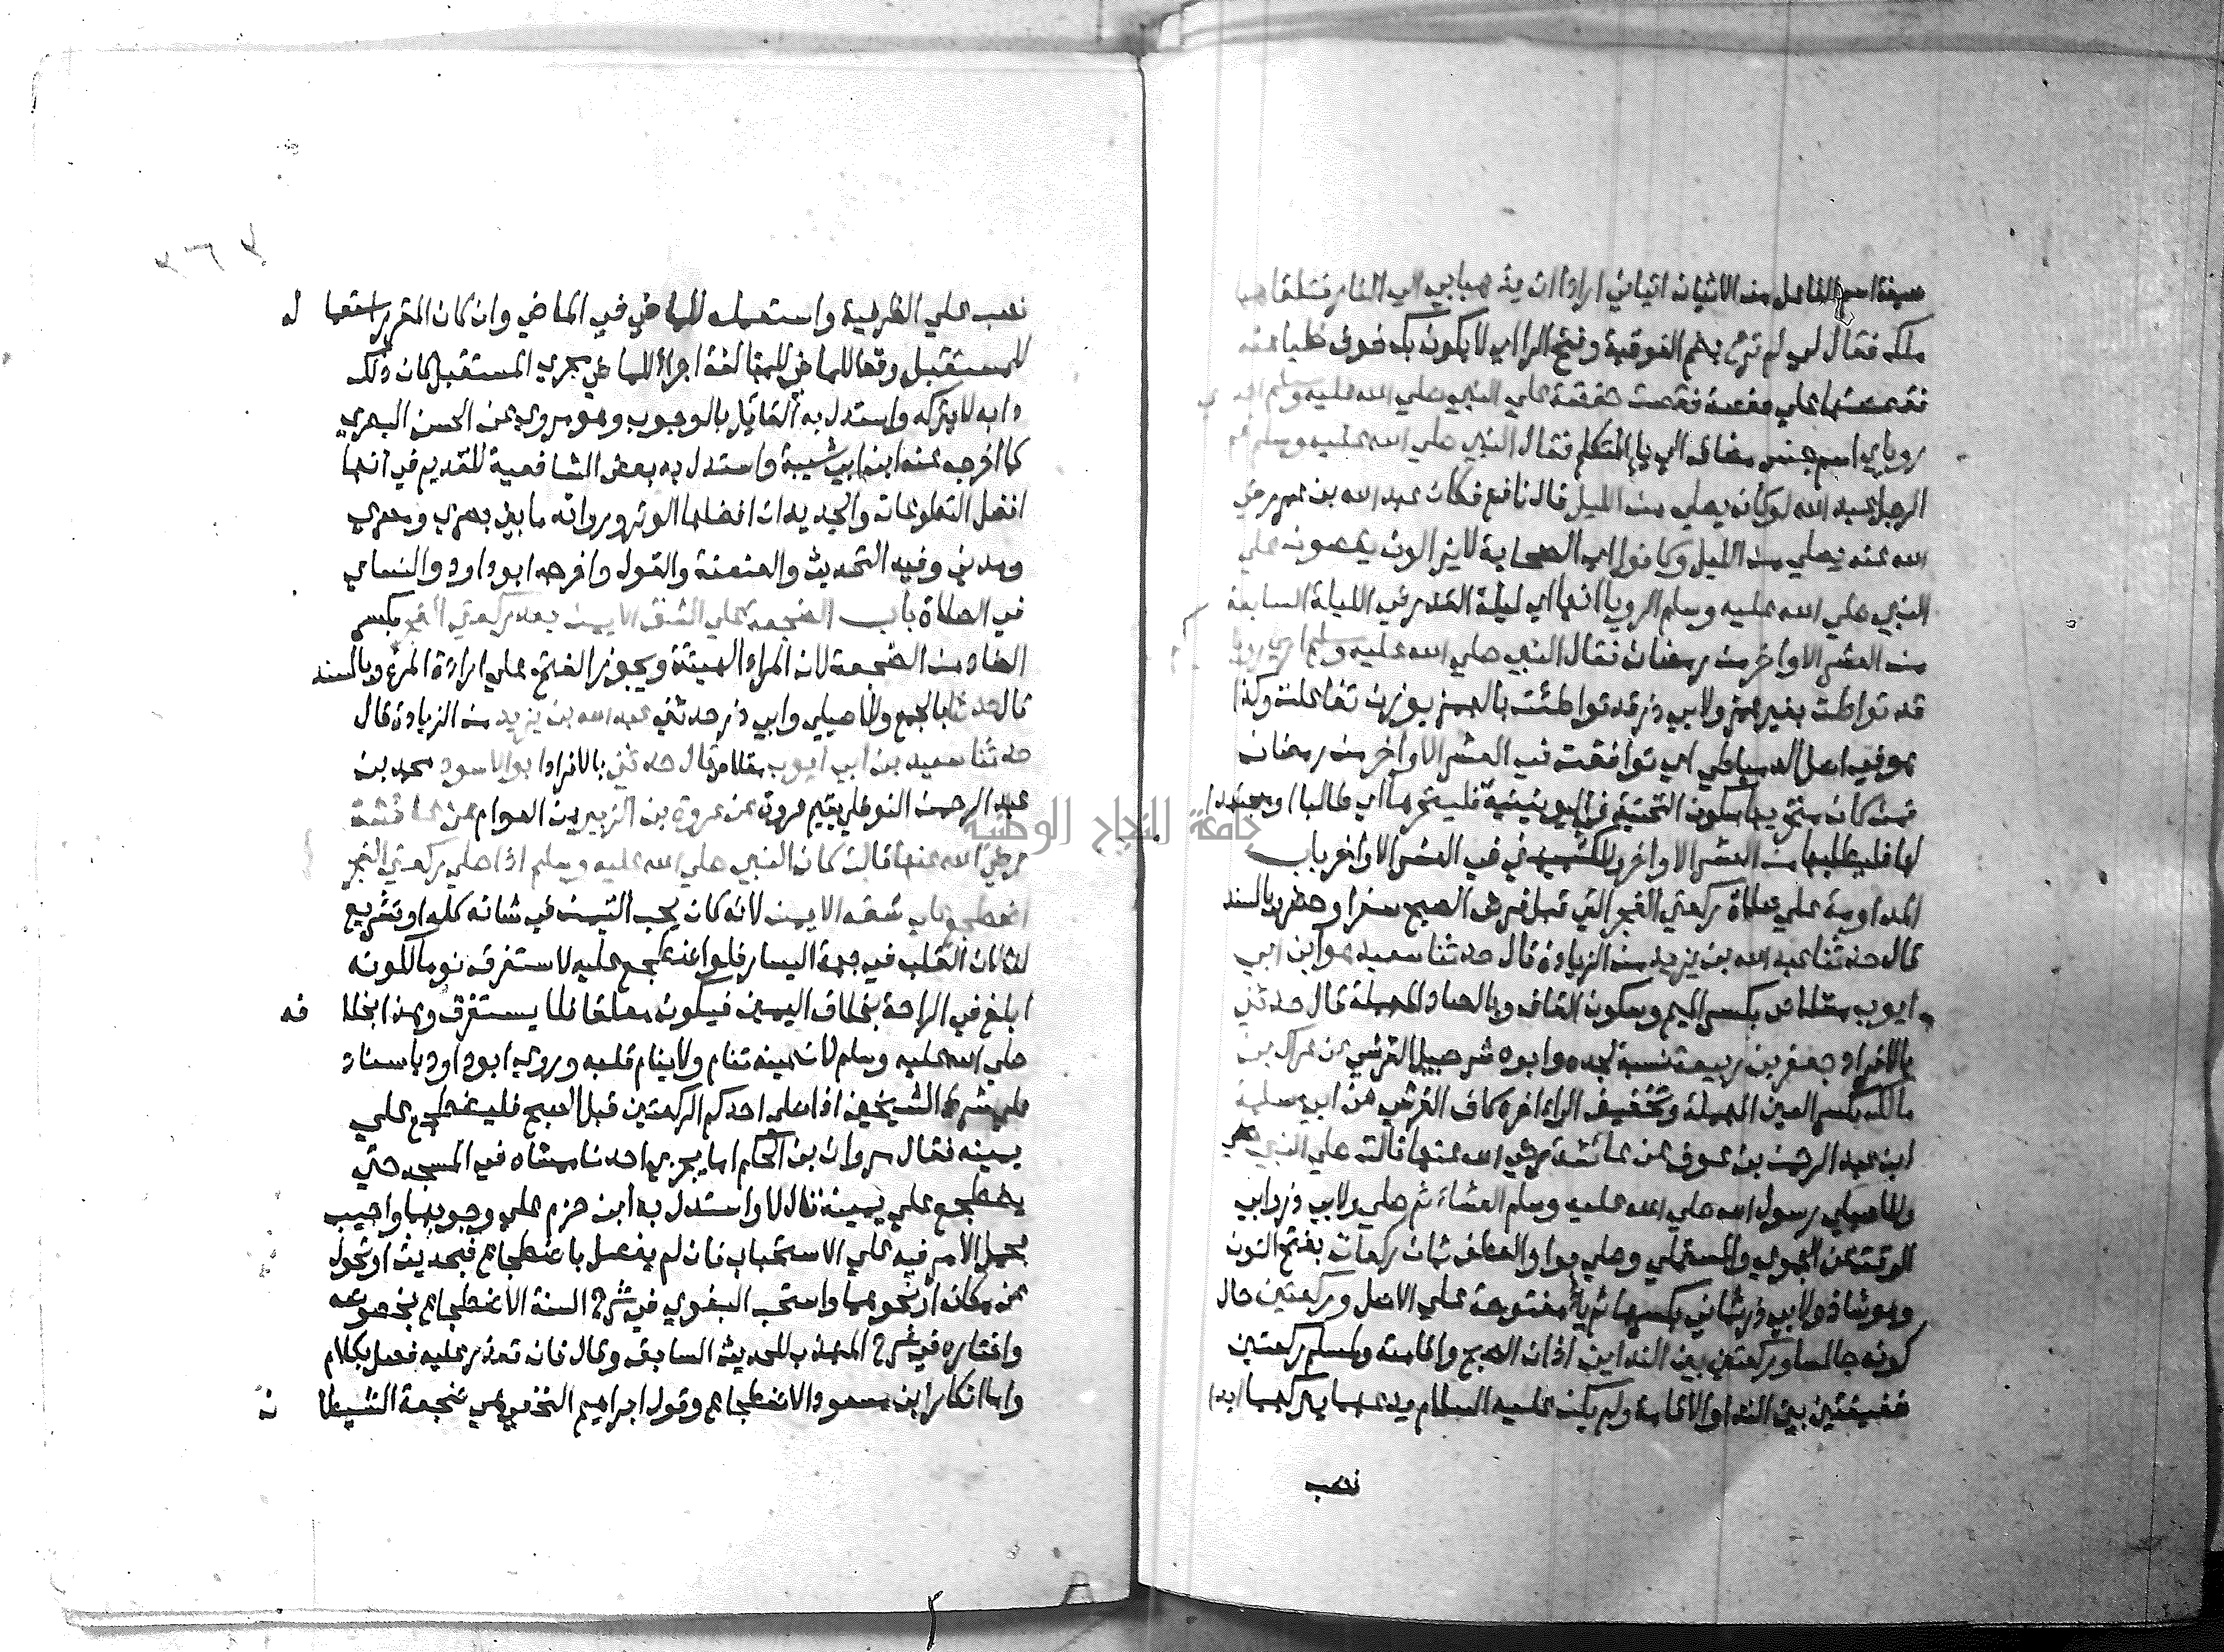 صيغة اسم الفاعل من الاتيان اتياني ارادا ان يذهبا بي الي النار فتلقاهما
ملك فقال لي لم ترع بضم الفوقية وفتح الراي لا يكون بك خوف خليا عنه
فقصصتها علي حفصة فقصت حفصة علي النبي صلي الله عليه وسلم احدي
روياي اسم جنس مضاف الي ياء المتكلم فقال النبي صلي الله عليه وسلم نعم
الرجل عبد الله لو كان يصلي من الليل قال نافع فكان عبد الله بن عمر رضي
الله عنه يصلي من الليل وكانوا اي الصحابة لا يزالون يقصون علي
النبي صلي الله عليه وسلم الرويا انها اي ليلة القدر في الليلة السابعة
من العشر الاواخر من رمضان فقال النبي صلي الله عليه وسلم اري روياكم
قد تواطت بغير همز ولابي ذر قد تواطئت بالهمز بوزن تفاعلت وكذا
هو في اصل الدمياطي اي توافقت في العشر الاواخر من رمضان
فمن كان متحريها بسكون التحتية في اليونينية فليتحرها اي طالبا او مجتهدا
لها فليطلبها من العشر الاواخر وللكشميهني في العشر الاواخر باب
المداومة علي صلاة ركعتي الفجر التي قبل فرض الصبح سفرا وحضرا وبالسند
قال حدثنا عبد الله بن يزيد من الزيادة قال حدثنا سعيد هو ابن ابي
ايوب مقلاص بكسر الميم وسكون القاف وبالصاد المهملة قال حدثني
بالافراد جعفر بن ربيعة نسبة لجده وابوه شرحبيل القرشي عن عراك بن
مالك بكسر العين المهملة وتخفيف الراء اخره كاف القرشي عن ابي سلمة
ابن عبد الرحمن بن عوف عن عائشة رضي الله عنها قالت صلي النبي صلي
وللاصيلي رسول الله صلي الله عليه وسلم العشاء ثم صلي ولابي ذر وابي
الوقت عن الحموي والمستملي وصلي بواو العطف ثمان ركعات بفتح النون
وهو شاذ ولابي ذر ثماني بكسرها ثم ياء مفتوحة علي الاصل وركعتين حال
كونه جالسا وركعتين بين النداين اذان الصبح واقامته ولمسلم ركعتين
خفيفتين بين النداء والاقامة ولم يكن عليه السلام يدعهما يتركهما ابدا
نصب
٣٦٣
نصب علي الظرفية واستعمله للماضي في الماضي وان كان المقرر استعماله
للمستقبل وقط للماضي للمبالغة اجراء للماضي مجري المستقبل كان ذلك
دابه لا يتركه واستدل به القايل بالوجوب وهو مروي عن الحسن البصري
كما اخرجه عنه ابن ابي شيبة واستدل به بعض الشافعية للقديم في انها
افضل التطوعات والجديد ان افضلها الوتر ورواته ما بين بصري ومصري
ومدني وفيه التحديث والعنعنة والقول واخرجه ابو داود والنساي
في الصلاة باب الضجعة علي الشق الايمن بعد ركعتي الفجر بكسر
الضاد من الضجعة لان المراد الهيئة ويجوز الفتح علي ارادة المرة وبالسند
قال حدثنا بالجمع وللاصيلي وابي ذر حدثني عبد الله بن يزيد من الزيادة قال
حدثنا سعيد بن ابي ايوب مقلاص قال حدثني بالافراد ابو الاسود محمد بن
عبد الرحمن النوفلي يتيم عروة عن عروة بن الزبير بن العوام عن عائشة
رضي الله عنها قالت كان النبي صلي الله عليه وسلم اذا صلي ركعتي الفجر
اضطجع علي شقه الايمن لانه كان يحب التيمن في شانه كله او تشريع
لنا لان القلب في جهة اليسار فلو اضطجع عليه لاستغرق نوما لكونه
ابلغ في الراحة بخلاف اليمين فيكون معلقا فلا يستغرق وهذا بخلافه
صلي الله عليه وسلم لان عينه تنام ولا ينام قلبه وروي ابو داود باسناد
علي شرط الشيخين اذا صلي احدكم الركعتين قبل الصبح فليضطجع علي
يمينه فقال مروان بن الحكم اما يجزي احدنا ممشاه في المسجد حتي
يضطجع علي يمينه قال لا واستدل به ابن حزم علي وجوبها واجيب
بحمل الامر فيه علي الاستحباب فان لم يفصل باضطجاع فبحديث او تحول
من مكان او نحوهما واستحب البغوي في شرح السنة الاضطجاع بخصوصه
واختاره في شرح المهذب للحديث السابق وقال فان تعذر عليه فصل بكلام
واما انكار ابن مسعود الاضطجاع وقول ابراهيم النخعي هي ضجعة الشيطان
جامعة النجاح الوطنية